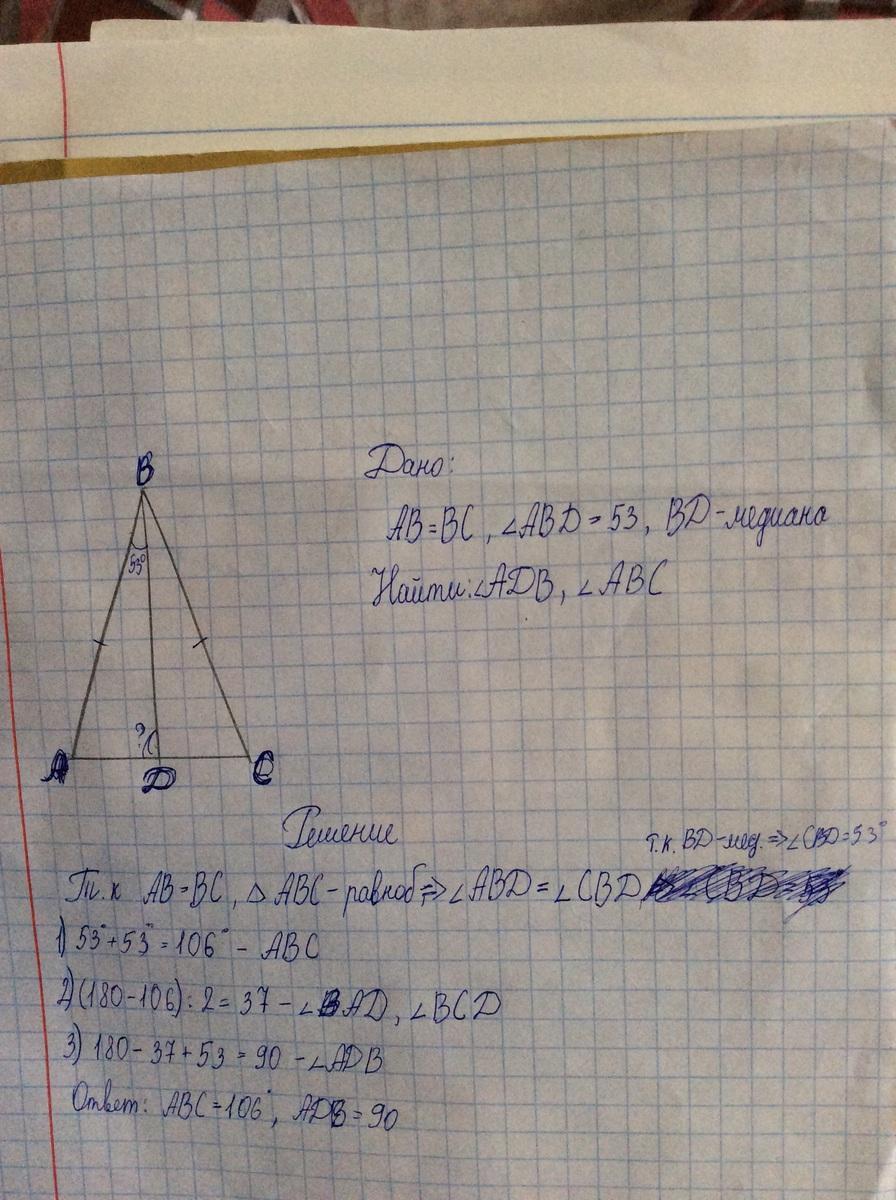 B
53°
?
A
D
C
Дано:
AB=BC, ∠ABD=53, BD-медиана
Найти:∠ADB, ∠ABC
Решение
т.к. BD-мед.⇒∠CBD=53°
Т.к AB=BC, △ABC-равноб⇒∠ABD=∠CBD
1) 53°+53°=106° - ABC
2)(180-106):2=37-∠BAD, ∠BCD
3) 180-37+53=90-∠ADB
Ответ: ABC=106°, ADB=90